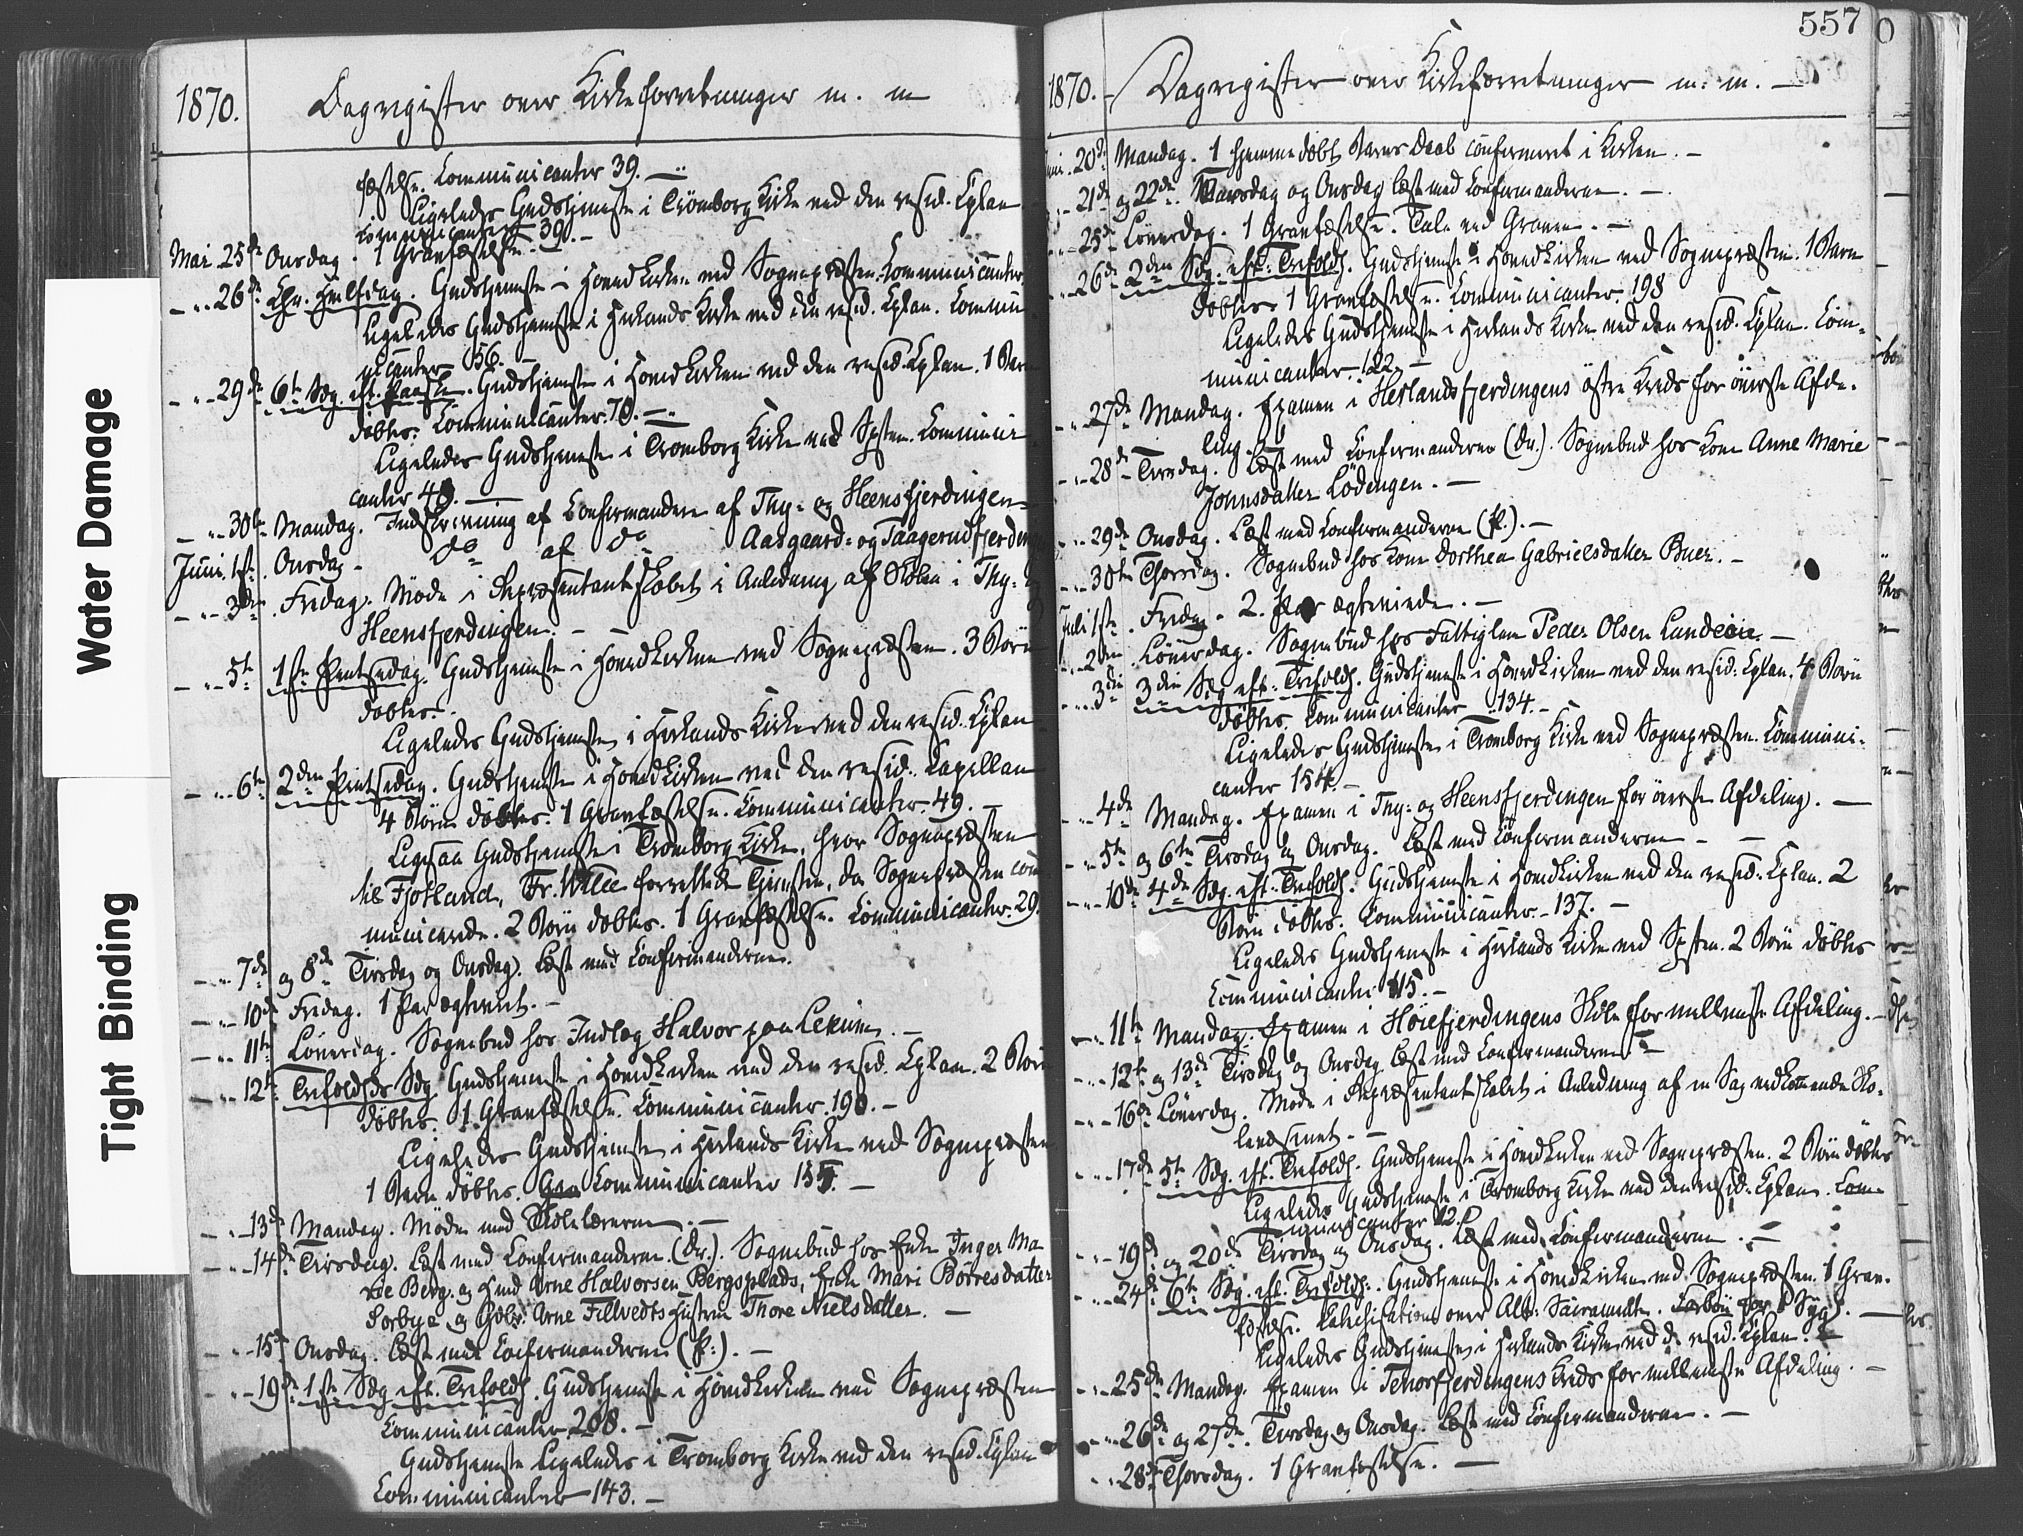 Water Damage
Tight Binding
1870. Dagregister over Kirkeforretninger m. m
fæstelse. Communicanter 39. —
Ligeledes Gudstjeneste i Trömborg Kirke ved den resid. Cplan
Communicanter 39. —
Mai 25de Onsdag. 1 Gravfæstelse. —
— „ — 26de Chr. Hmlfdag. Gudstjeneste i Hovedkirken ved Sognepræsten. Communicanter
Ligeledes Gudstjeneste i Herlands Kirke ved den resid. Cplan. Commu
nicanter 56. —
— „ — 29de 6te Sdg. eft. Paaske. Gudstjeneste i Hovedkirken ved den resid. Cplan. 1 Barn
döbtes. Communicanter. 70. —
Ligeledes Gudstjeneste i Tromborg Kirke ved Spsten. Communi
canter 40. —
— „ — 30te Mandag. Indskrivning af Confirmandere af Thy= og Heensfjerdingen
Juni 1ste Onsdag — do af do Aasgaard= og Taagerudfjerdin
— „ — 3die Fredag. Möde i Repræsentantskabet i Anledning af Skolen i Thy= og
Heensfjerdingen. —
— „ — 5te 1ste Pintsedag. Gudstjeneste i Hovedkirken ved Sognepræsten. 3 Börn
döbtes.
Ligeledes Gudstjeneste i Herlands Kirke ved den resid. Cplan
— „ — 6te 2den Pintsedag. Gudstjeneste i Hovedkirken ved den resid. Capellan
4 Börn döbtes. 1 Gravfæstelse. Communicanter. 49. —
Ligesaa Gudstjeneste i Tromborg Kirke, hvor Sognepræsten
til Fjotland, Fr. Wille forrettede Tjenesten, da Sognepræsten com
municerede. 2 Börn döbtes. 1 Gravfæstelse. Communicanter. 29.
— „ — 7de og 8de Tirsdag og Onsdag. Læst med Confirmanderne.
— „ — 10de Fredag. 1 Par ægteviet. —
— „ — 11te Löverdag. Sognebud hos Indlæg Halvor paa Lekum. —
— „ — 12te Trefoldhds Sdg Gudstjeneste i Hovedkirken ved den resid. Cplan. 2 Börn
döbtes. 1 Gravfæstelse. Communicanter. 190. —
Ligeledes Gudstjeneste i Herlands Kirke ved Sognepræsten
1 Barn döbtes. Gra Communicanter 135. —
— „ — 13de Mandag. Möde med Skolelærerne. —
— „ — 14de Tirsdag. Læst med Confirmanderne. (Dr.). Sognebud hos Enke Inger Ma
rie Berg. og Hmd Arne Halvorsen Bergsplads, Enke Mari Borresdatter
Sorbye og Gdbr. Arne Fillvedts Hustru Thore Nielsdatter. —
— „ — 15de Onsdag. Læst med Confirmanderne (P.). —
— „ — 19de 1ste Sdg eft. Trefoldh. Gudstjeneste i Hovedkirken ved Sognepræsten
Communicanter 208. —
Gudstjeneste Ligeledes i Tromborg Kirke ved den resid. Cplan
Communicanter 143. —
557
1870. — Dagregister over Kirkeforretninger m. m. —
Juni. 20de Mandag. 1 hjemmedöbt Barns Daab confirmeret i Kirken. —
— „ — 21de og 22de. Tirsdag og Onsdag læst med Confirmanderne. —
— „ — 25de Löverdag. 1 Gravfæstelse. Tale ved Graven. —
— „ — 26de 2den Sdg. eft. Trefoldh. Gudstjeneste i Hovedkirken ved Sognepræsten. 1 Barn
döbtes 1 Gravfæstelse. Communicanter. 198
Ligeledes Gudstjeneste i Herlands Kirke ved den resid. Cplan. Com=
municanter. 122. —
— „ — 27de Mandag. Examen i Herlandsfjerdingens östre Kreds for överste Afde=
ling. —
— „ — 28de Tirsdag. Læst med Confirmanderne (Dr.). Sognebud hos Kone Anne Marie
Johnsdatter Lödengen. —
— „ — 29de Onsdag. Læst med Confirmanderne (P.). —
— „ — 30te Thorsdag. Sognebud hos Kone Dorthea Gabrielsdatter Buer. —
Juli 1ste Fredag. 2. Par ægteviede. —
— „ — 2den Löverdag. Sognebud hos Fattiglem Peder Olsen Lundeeie. —
— „ — 3die 3die Sdg. eft. Trefoldh. Gudstjeneste i Hovedkirken ved den resid. Cplan. 4 Börn
döbtes Communicanter 134. —
Ligeledes Gudstjeneste i Tromborg Kirke ved Sognepræsten. Communi=
canter 154. —
— „ — 4de Mandag. Examen i Thy= og Heensfjerdingen for överste Afdeling. —
— „ — 5te og 6te Tirsdag og Onsdag. Læst med Confirmanderne —
— „ — 10de 4de Sdg. eft. Trefoldh. Gudstjeneste i Hovedkirken ved den resid. Cplan. 2
Börn döbtes. Communicanter. 137. —
Ligeledes Gudstjeneste i Herlands Kirke ved Spsten. 2 Börn döbtes
Communicanter 115. —
— „ — 11te Mandag. Examen i Hoiefjerdingens Skole for mellemste Afdeling. —
— „ — 12te og 13de Tirsdag og Onsdag læst med Confirmanderne. —
— „ — 16de Löverdag. Möde i Repræsentantskabet i Anledning af en Sag vedkommende Sko=
levæsenet. —
— „ — 17de 5te Sdg. eft. Trefoldh. Gudstjeneste i Hovedkirken ved Sognepræsten. 2 Börn döbtes
Ligeledes Gudstjeneste i Tromborg Kirke ved den resid. Cplan. Com=
municanter 12.
— „ — 19de og 20de Tirsdag og Onsdag. Læst med Confirmanderne. —
— „ — 24de 6te Sdg. eft. Trefoldh. Gudstjeneste i Hovedkirken ved Sognepræsten. 1 Grav=
fæstelse. Catechisation over Alt: Sacramente. Forbön for 1 Syg. —
Ligeledes Gudstjeneste i Herlands Kirke ved d. resid. Cplan. —
— „ — 25de Mandag. Examen i Tenorfjerdingens Kreds for mellemste Afdeling. —
— „ — 26de og 27de. Tirsdag og Onsdag. Læst med Confirmanderne. —
— „ — 28de Thorsdag. 1 Gravfæstelse. —